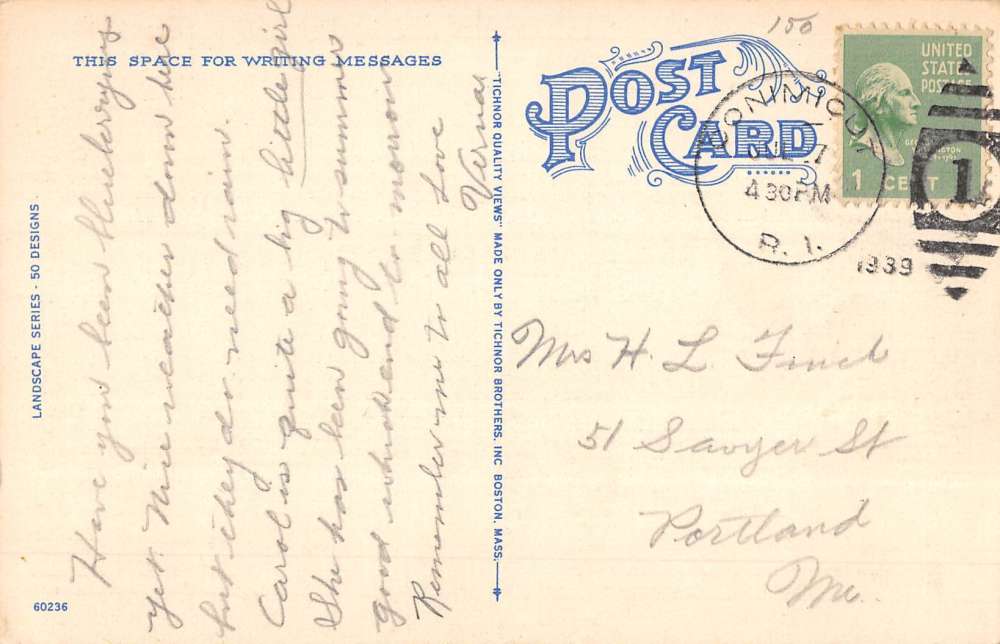 THIS SPACE FOR WRITING MESSAGES
POST
CARD
150
CONIMICUT
JUL 7
4 30 PM
R. I.
1939
UNITED
STATES
POSTAGE
1 CENT
1
LANDSCAPE SERIES - 50 DESIGNS
60236
"TICHNOR QUALITY VIEWS" MADE ONLY BY TICHNOR BROTHERS, INC BOSTON, MASS.
Have you been blueberrying
yet. Nice weather down here
but they do need rain.
Carol is quite a big little girl
She has been going to summer
good
Remember me to all Love
Verna
Mrs H. L. Finch
51 Sawyer St
Portland
Me.